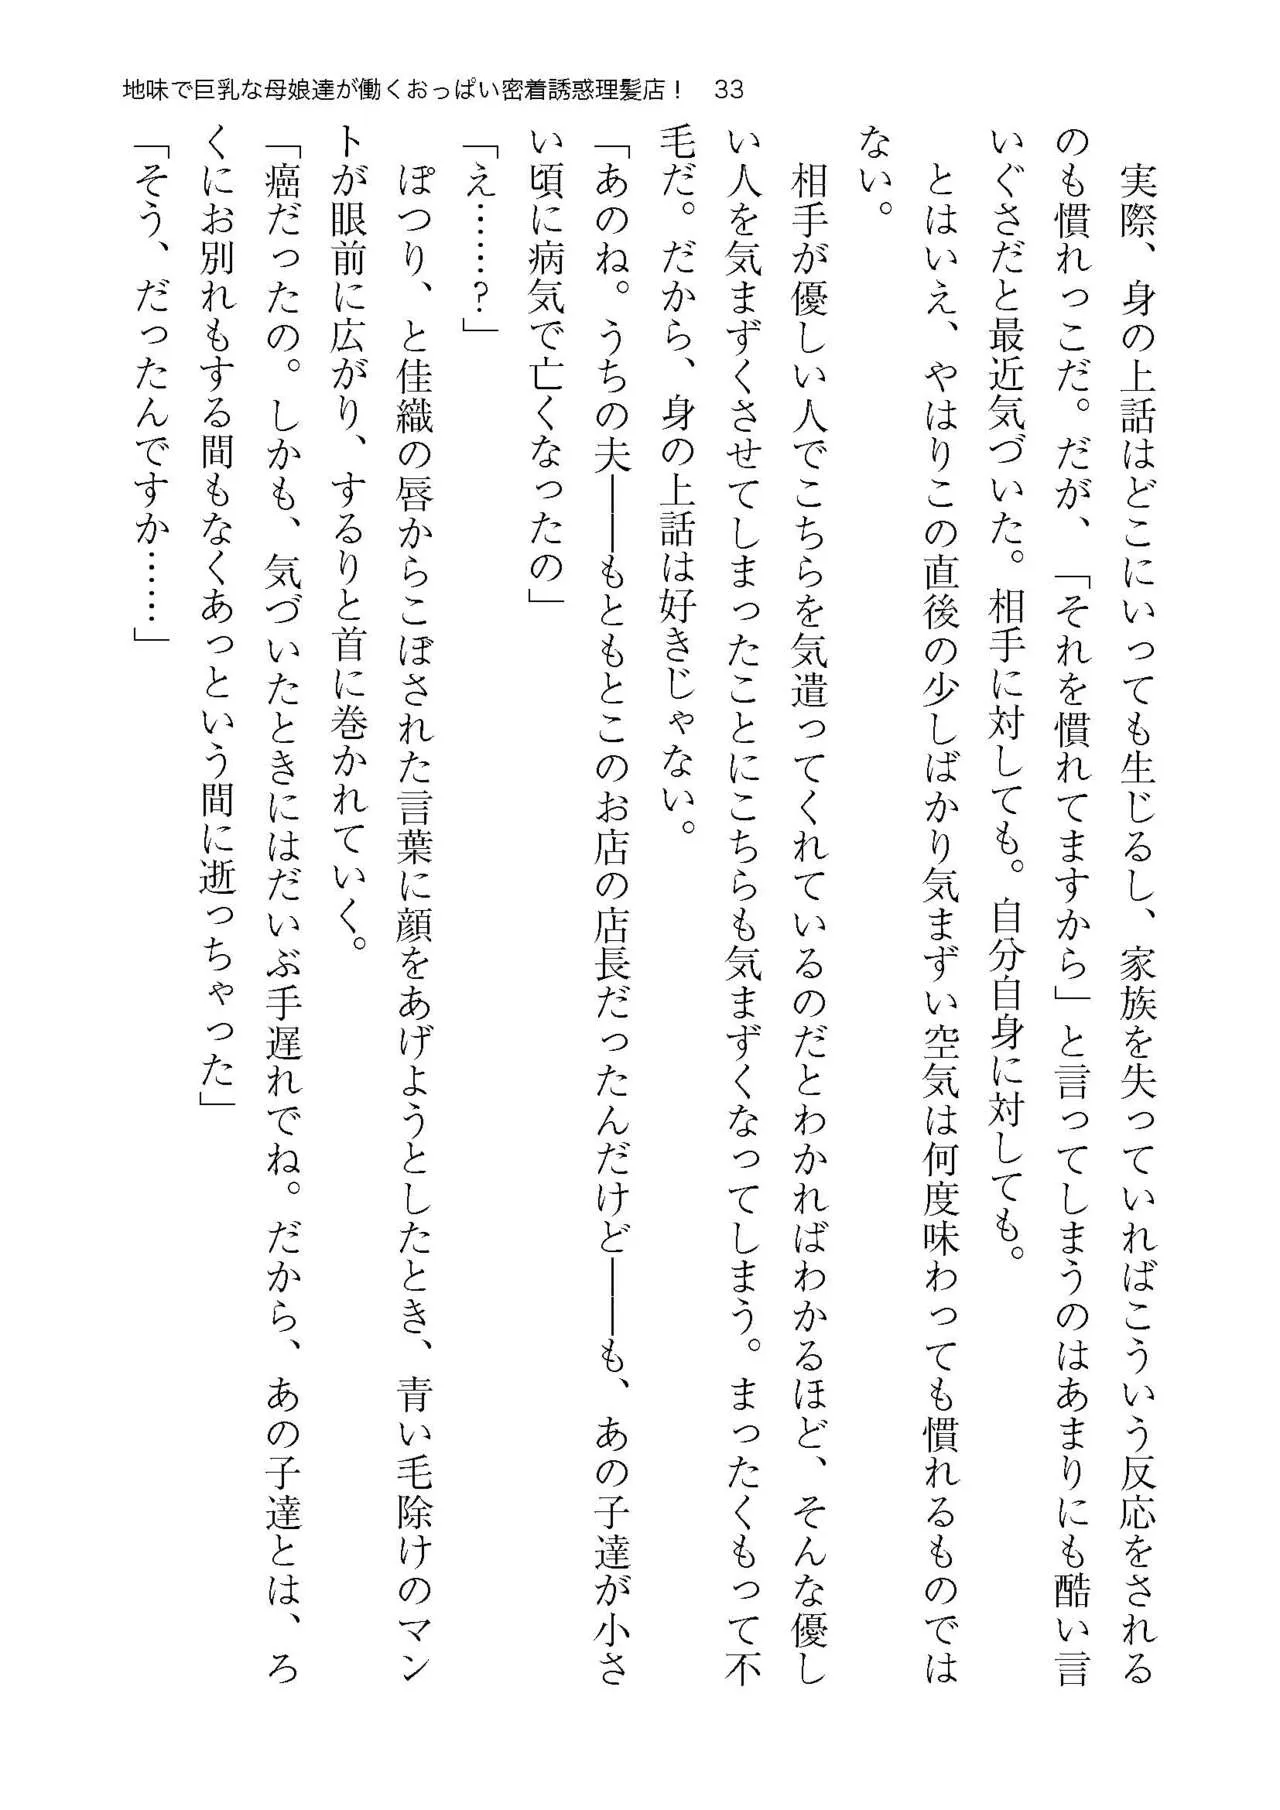 地味で巨乳な母娘達が働くおっぱい密着誘惑理髪店！　33
　実際、身の上話はどこにいっても生じるし、家族を失っていればこういう反応をされる
のも慣れっこだ。だが、「それを慣れてますから」と言ってしまうのはあまりにも酷い言
いぐさだと最近気づいた。相手に対しても。自分自身に対しても。
　とはいえ、やはりこの直後の少しばかり気まずい空気は何度味わっても慣れるものでは
ない。
　相手が優しい人でこちらを気遣ってくれているのだとわかればわかるほど、そんな優し
い人を気まずくさせてしまったことにこちらも気まずくなってしまう。まったくもって不
毛だ。だから、身の上話は好きじゃない。
「あのね。うちの夫――もともとこのお店の店長だったんだけど――も、あの子達が小さ
い頃に病気で亡くなったの」
「え……？」
　ぽつり、と佳織の唇からこぼされた言葉に顔をあげようとしたとき、青い毛除けのマン
トが眼前に広がり、するりと首に巻かれていく。
「癌だったの。しかも、気づいたときにはだいぶ手遅れでね。だから、あの子達とは、ろ
くにお別れもする間もなくあっという間に逝っちゃった」
「そう、だったんですか……」